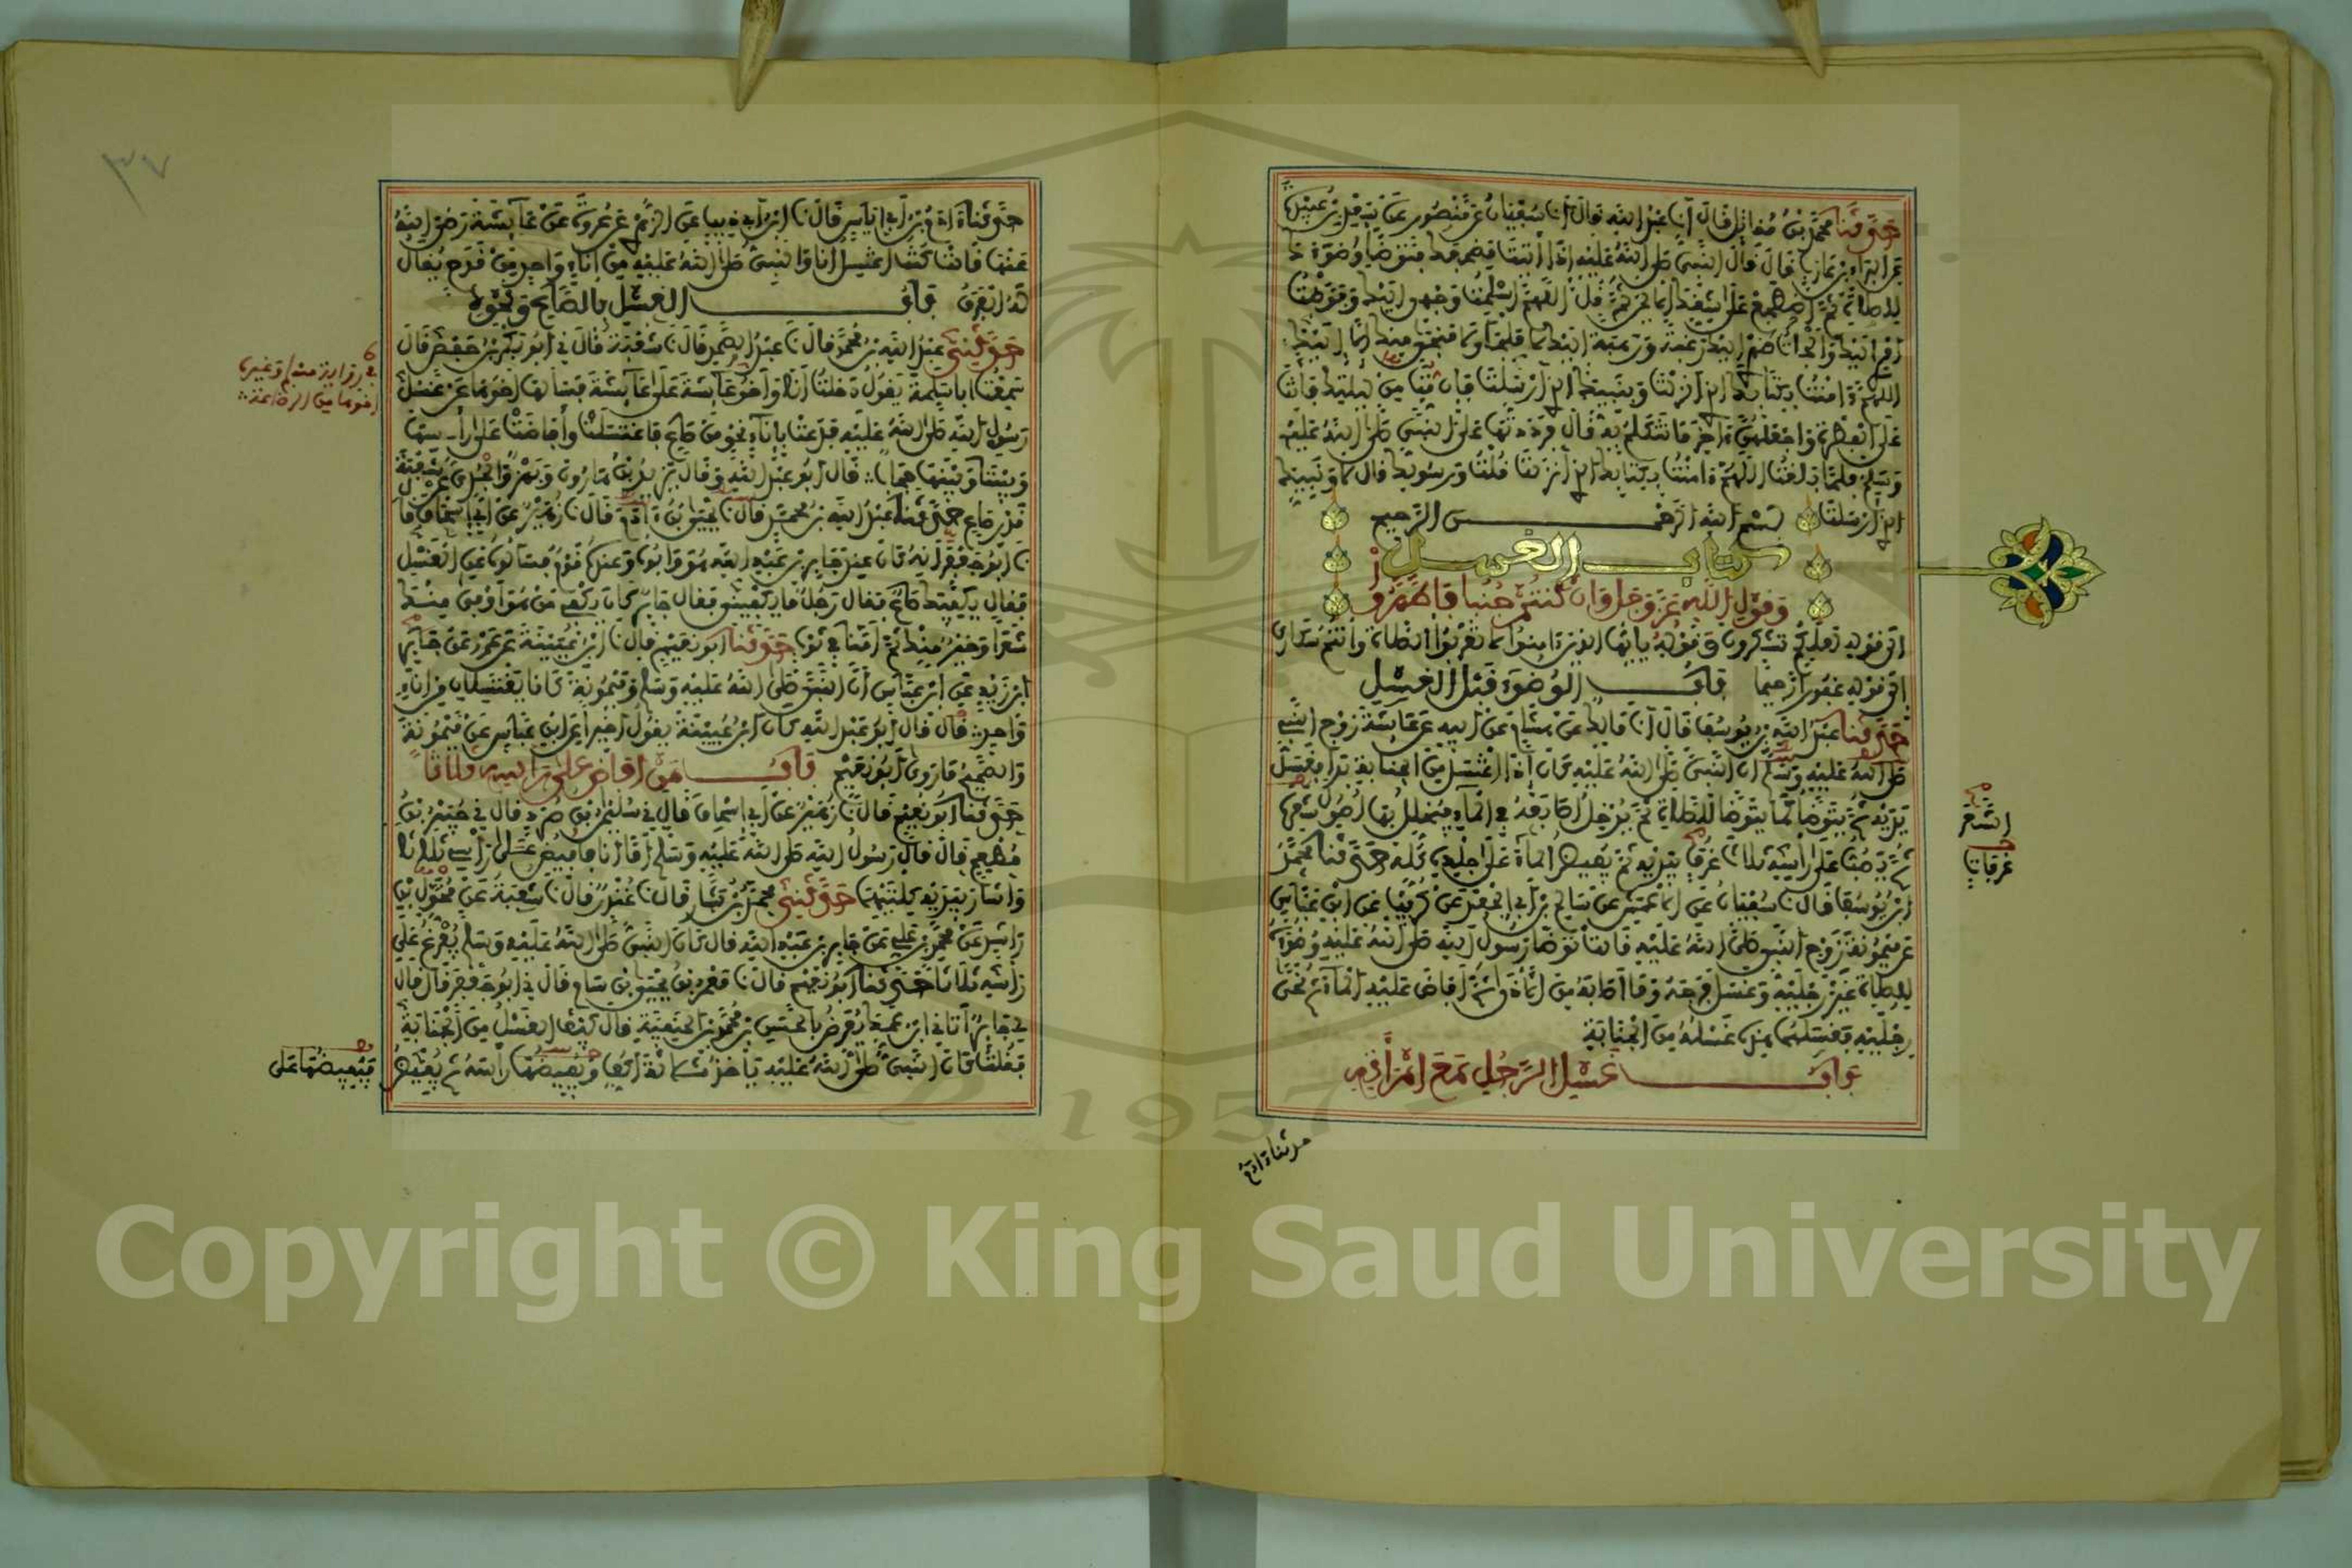 حدثنا محمد بن مقاتل قال أنا عبد الله قال أنا سفيان عن منصور عن سعد بن عبيدة
عن البراء بن عازب قال قال النبي صلى الله عليه إذا أتيت مضجعك فتوضأ وضوءك
للصلاة ثم اضطجع على شقك الأيمن ثم قل اللهم أسلمت وجهي إليك وفوضت
أمري إليك وألجأت ظهري إليك رغبة ورهبة إليك لا ملجأ ولا منجى منك إلا إليك
اللهم آمنت بكتابك الذي أنزلت وبنبيك الذي أرسلت فإن مت من ليلتك فأنت
على الفطرة واجعلهن آخر ما تتكلم به قال فرددتها على النبي صلى الله عليه
وسلم فلما بلغت اللهم آمنت بكتابك الذي أنزلت قلت ورسولك قال لا ونبيك
الذي أرسلت بسم الله الرحمن الرحيم
كتاب الغسل
وقول الله عز وجل وإن كنتم جنبا فاطهروا
إلى قوله لعلكم تشكرون وقوله يا أيها الذين آمنوا لا تقربوا الصلاة وأنتم سكارى
إلى قوله غفورا رحيما باب الوضوء قبل الغسل
حدثنا عبد الله بن يوسف قال أنا مالك عن هشام عن أبيه عن عائشة زوج النبي
صلى الله عليه وسلم أن النبي صلى الله عليه كان إذا اغتسل من الجنابة بدأ فغسل
يديه ثم يتوضأ كما يتوضأ للصلاة ثم يدخل أصابعه في الماء فيخلل بها أصول شعره
ثم يصب على رأسه ثلاث غرف بيديه ثم يفيض الماء على جلده كله حدثنا محمد
بن يوسف قال نا سفيان عن الأعمش عن سالم بن أبي الجعد عن كريب عن ابن عباس
عن ميمونة زوج النبي صلى الله عليه قالت توضأ رسول الله صلى الله عليه وضوءه
للصلاة غير رجليه وغسل فرجه وما أصابه من الأذى ثم أفاض عليه الماء ثم نحى
رجليه فغسلهما هذه غسله من الجنابة
باب غسل الرجل مع امرأته
الشعر
غرفات
حدثنا آدم
حدثنا آدم بن أبي إياس قال نا ابن أبي ذيب عن الزهري عن عروة عن عائشة رضي الله
عنها قالت كنت أغتسل أنا والنبي صلى الله عليه من إناء واحد من قدح يقال
له الفرق باب الغسل بالصاع ونحوه
حدثني عبد الله بن محمد قال نا عبد الصمد قال نا شعبة قال ني أبو بكر بن حفص قال
سمعت أبا سلمة يقول دخلت أنا وأخو عائشة على عائشة فسألها أخوها عن غسل
رسول الله صلى الله عليه فدعت بإناء نحو من صاع فاغتسلت وأفاضت على رأسها
وبيننا وبينها حجاب قال أبو عبد الله وقال يزيد بن هارون وبهز والجدي عن شعبة
قدر صاع حدثنا عبد الله بن محمد قال نا يحيى بن آدم قال نا زهير عن أبي إسحاق قا
نا أبو جعفر أنه كان عند جابر بن عبد الله هو وأبوه وعنده قوم فسألوه عن الغسل
فقال يكفيك صاع فقال رجل ما يكفيني فقال جابر كان يكفي من هو أوفى منك
شعرا وخير منك ثم أمنا في ثوب حدثنا أبو نعيم قال نا ابن عيينة عن عمرو عن جابر
بن زيد عن ابن عباس أن النبي صلى الله عليه وسلم وميمونة كانا يغتسلان من إناء
واحد قال قال أبو عبد الله كان ابن عيينة يقول أخيرا عن ابن عباس عن ميمونة
والصحيح ما روى أبو نعيم باب من أفاض على رأسه ثلاثا
حدثنا أبو نعيم قال نا زهير عن أبي إسحاق قال ني سليمان بن صرد قال ني جبير بن
مطعم قال قال رسول الله صلى الله عليه وسلم أما أنا فأفيض على رأسي ثلاثا
وأشار بيديه كلتيهما حدثني محمد بن بشار قال نا غندر قال نا شعبة عن مخول بن
راشد عن محمد بن علي عن جابر بن عبد الله قال كان النبي صلى الله عليه وسلم يفرغ على
رأسه ثلاثا حدثنا أبو نعيم قال نا معمر بن يحيى بن سام قال ني أبو جعفر قال قال
لي جابر أتاني ابن عمك يعرض بالحسن بن محمد بن الحنفية قال كيف الغسل من الجنابة
فقلت كان النبي صلى الله عليه يأخذ ثلاثة أكف ويفيضها رأسه ثم يفيض
في رواية مسلم وغيره
أخوها من الرضاعة
فيفيضها على
٣٧
1957
Copyright © King Saud University